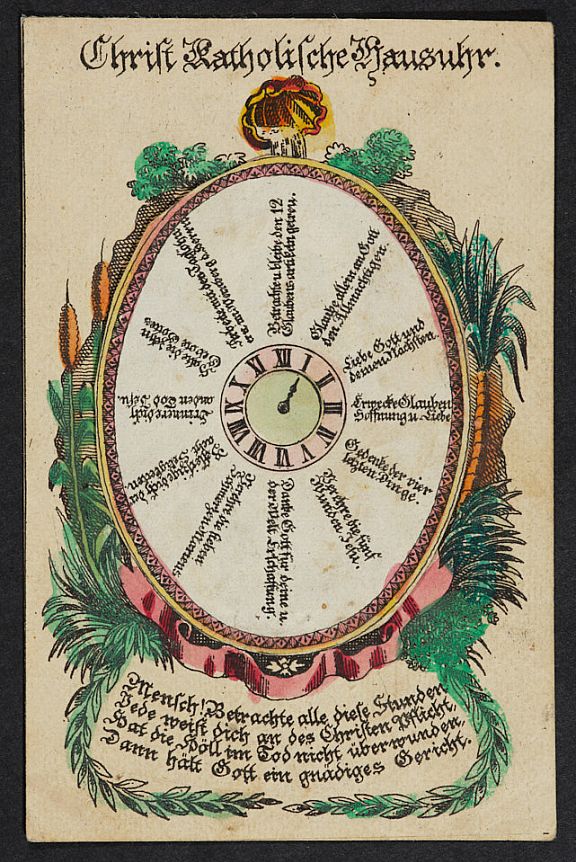 Christ Katholische Hausuhr.
Betrachte u. bleibe den 12
Glaubensartikeln getreu.
Glaube allein an Gott
den Allmächtigen.
Liebe Gott und
deinen Nächsten.
Erwecke Glauben
Hoffnung u. Liebe
Gedenke der vier
letzten Dinge.
Verehre die fünf
Wunden Jesu
Danke Gott für deine u.
der Welt Erschaffung.
Verehre die sieben
Schmerzen Mariens
acht Seligkeiten
Erinnere dich
an den Tod Jesu
Halte die zehn
Gebote Gottes
I II III V VI VII VIII IX X XI XII
Mensch! Betrachte alle diese Stunden
Jede weist dich an des Christen Pflicht.
Hat die Höll im Tod nicht überwunden
Dann hält Gott ein gnädiges Gericht.